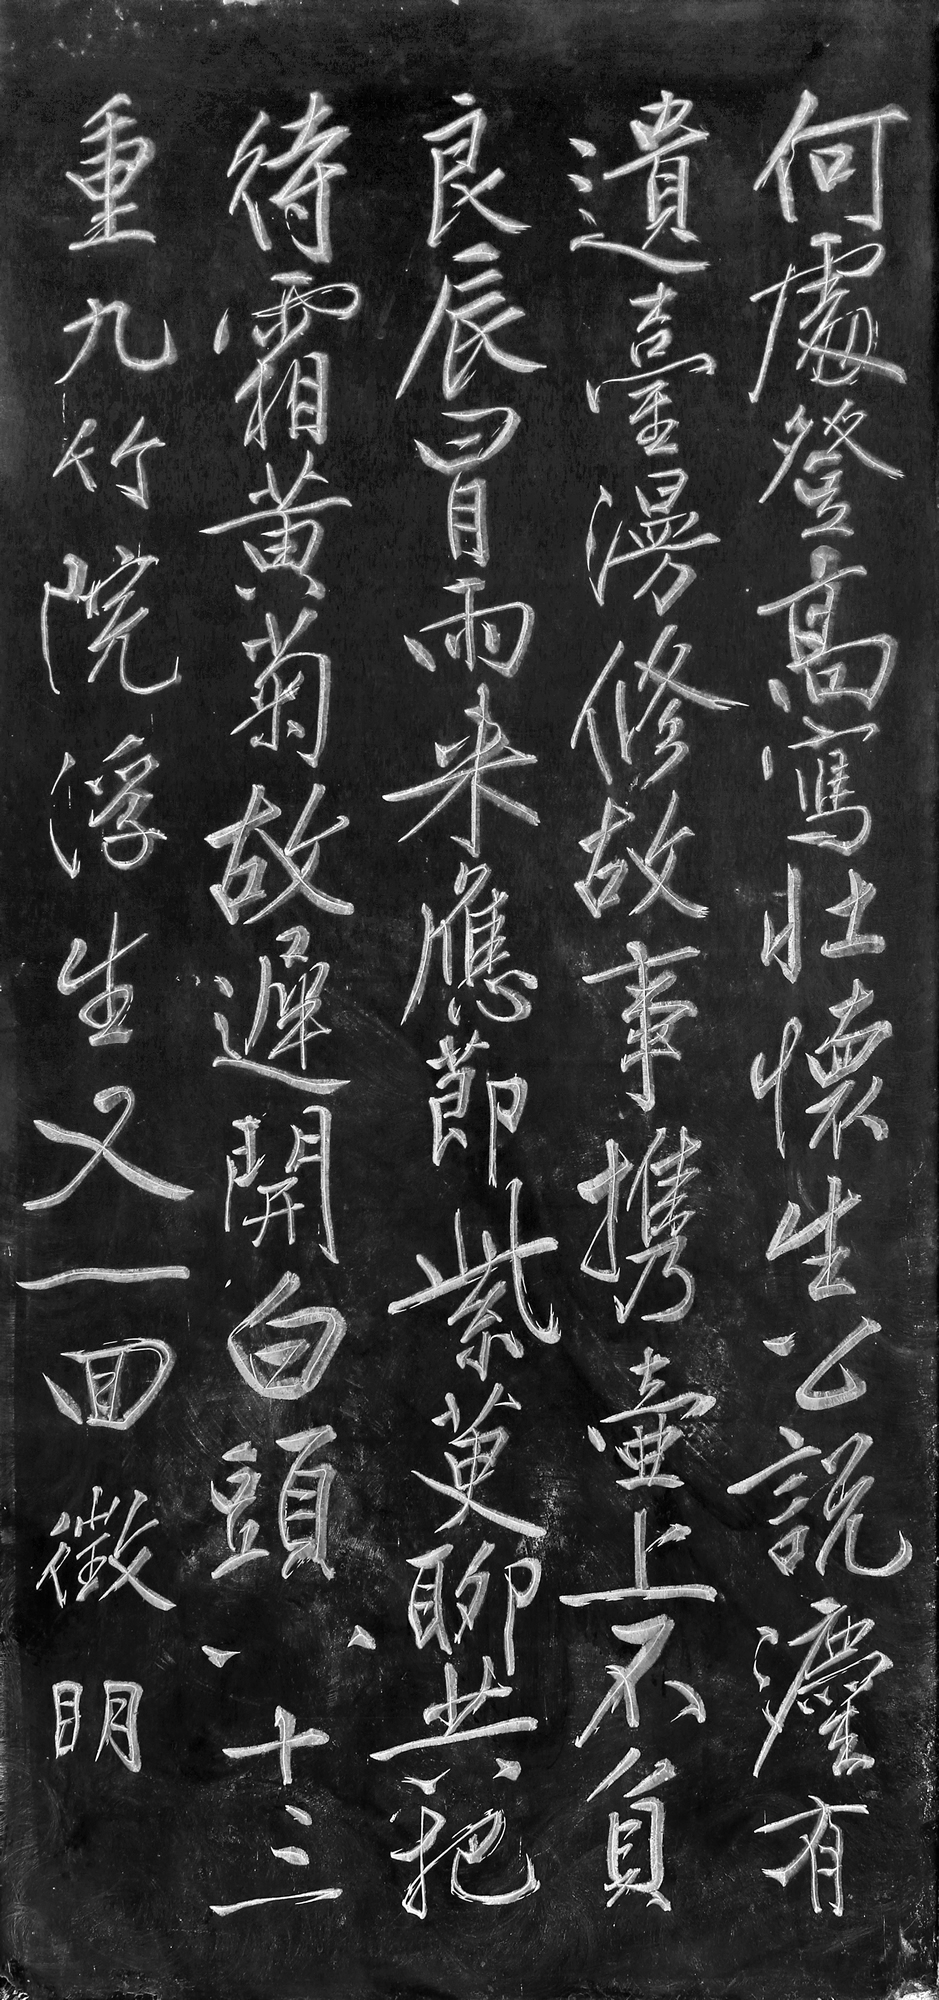 何處登高寫壯懷生公說灋有
遺臺漫修故事攜壺上不負
良辰冒雨來應節紫萸聊共把
待霜黃菊故遲開白頭八十三
重九竹院浮生又一回徵明